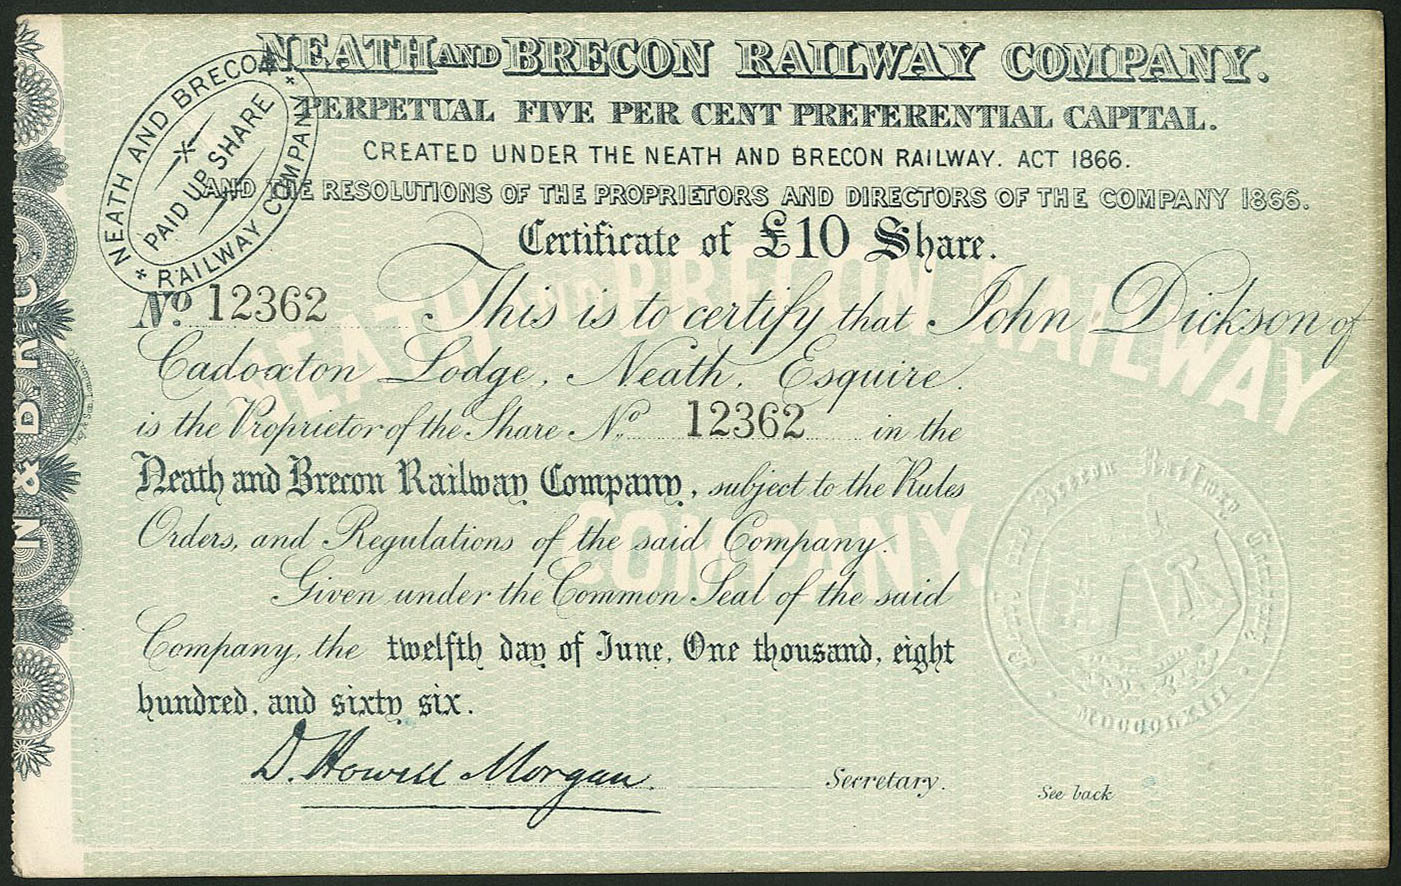 NEATH AND BRECON RAILWAY COMPANY.
PERPETUAL FIVE PER CENT PREFERENTIAL CAPITAL.
CREATED UNDER THE NEATH AND BRECON RAILWAY. ACT 1866.
AND THE RESOLUTIONS OF THE PROPRIETORS AND DIRECTORS OF THE COMPANY 1866.
NEATH AND BRECON
RAILWAY COMPANY
PAID UP SHARE
Certificate of £10 Share.
No. 12362 This is to certify that John Dickson of
Cadoxton Lodge, Neath, Esquire.
is the Proprietor of the Share No. 12362 in the
Neath and Brecon Railway Company, subject to the Rules
Orders, and Regulations of the said Company.
Given under the Common Seal of the said
Company, the twelfth day of June, One thousand, eight
hundred, and sixty six.
D. Howell Morgan Secretary.
See back
NEATH AND BRECON RAILWAY
COMPANY.
N & B. R. C
Brecon Railway